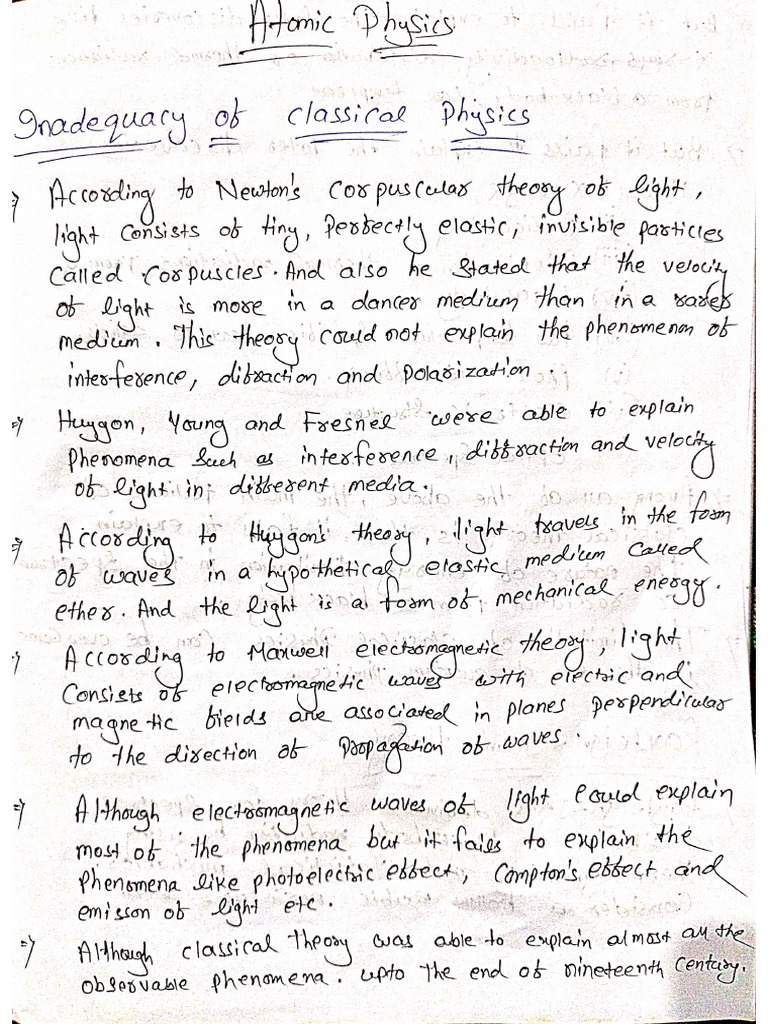 Atomic Physics
Inadequacy of classical Physics
⇒ According to Newton's corpuscular theory of light,
light consists of tiny, perfectly elastic, invisible particles
called corpuscles. And also he stated that the velocity
of light is more in a dancer medium than in a rarer
medium. This theory could not explain the phenomenon of
interference, difraction and polarization.
⇒ Huygon, Young and Fresnel were able to explain
phenomena such as interference, diffraction and velocity
of light in different media.
⇒ According to Huygon's theory, light travels in the form
of waves in a hypothetical elastic medium called
ether. And the light is a form of mechanical energy.
⇒ According to Maxwell electromagnetic theory, light
consists of electromagnetic waves with electric and
magnetic fields are associated in planes perpendicular
to the direction of propagation of waves.
⇒ Although electromagnetic waves of light could explain
most of the phenomena but it fails to explain the
phenomena like photoelectric effect, Compton's effect and
emisson of light etc.
⇒ Although classical theory was able to explain almost all the
observable phenomena. upto the end of nineteenth century.